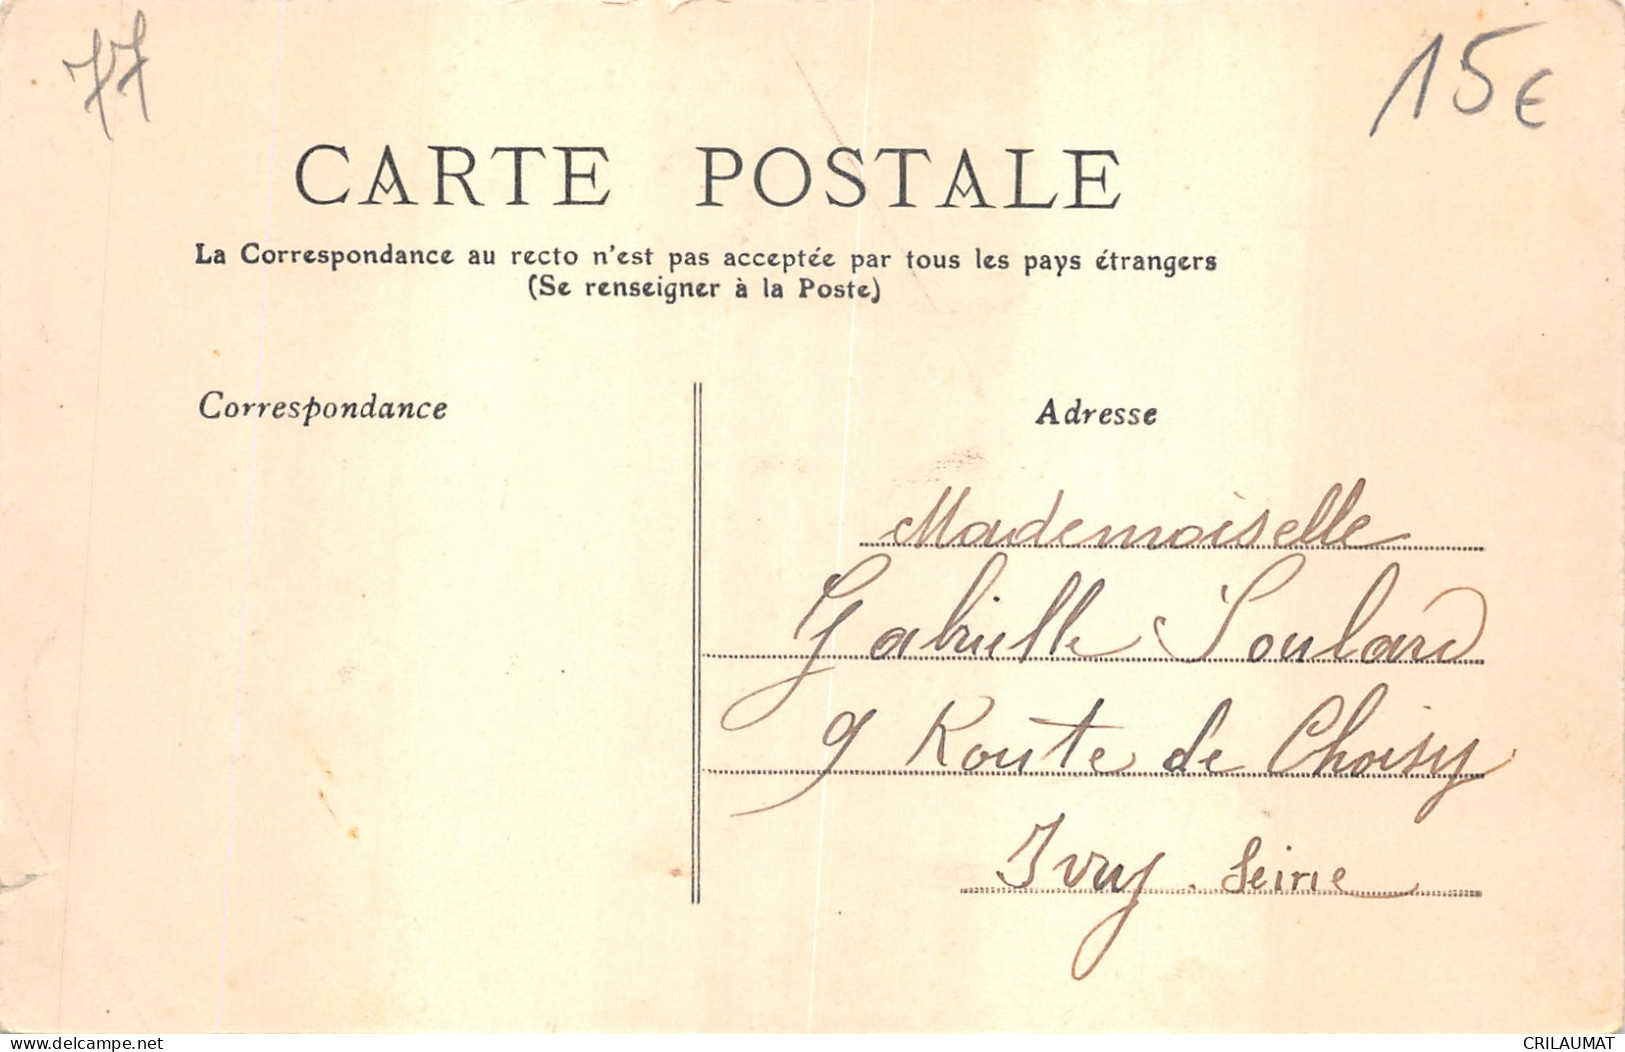 77
15€
CARTE POSTALE
La Correspondance au recto n'est pas acceptée par tous les pays étrangers
(Se renseigner à la Poste)
Correspondance
Adresse
Mademoiselle
Gabrielle Soulard
9 Route de Choisy
Ivry . Seine
www.delcampe.net
CRILAUMAT